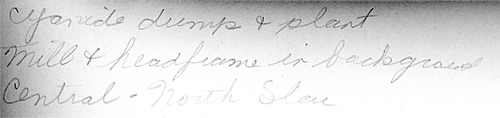 Cyanide dump & plant
Mill & headframe in background
Central - North Star